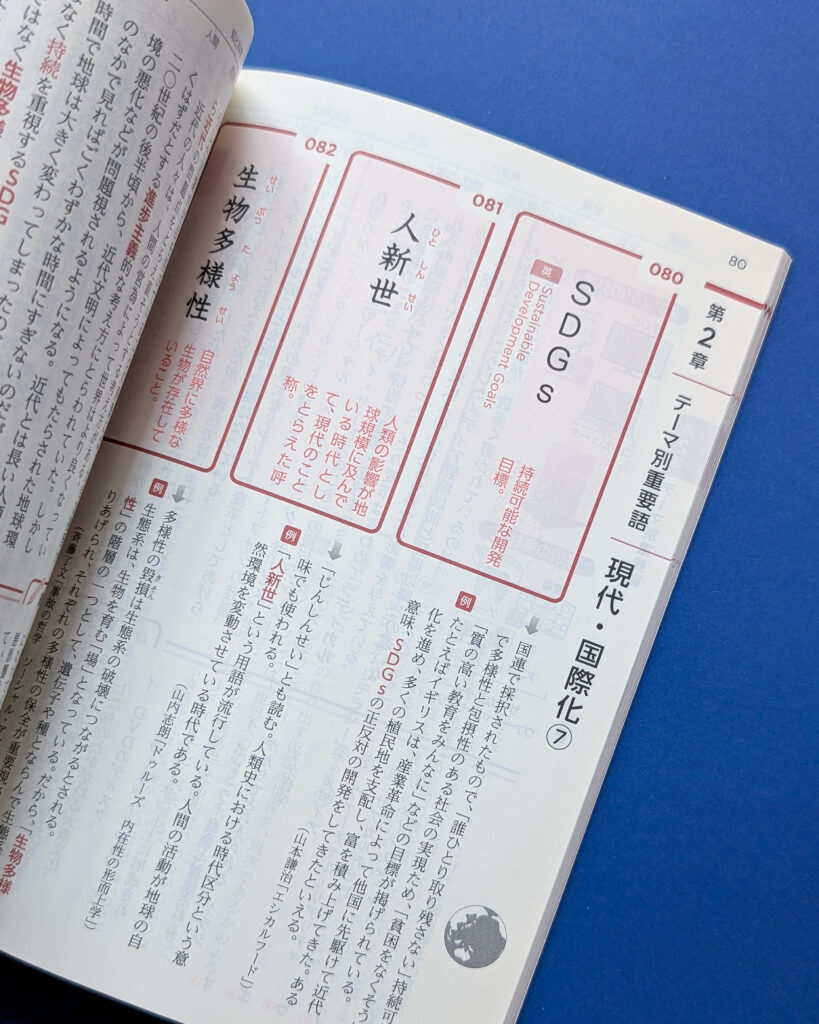 80
第2章 テーマ別重要語 現代・国際化⑦
080
SDGs
英 Sustainable
Development Goals
持続可能な開発
目標。
国連で採択されたもので、「誰ひとり取り残さない」持続可
で多様性と包摂性のある社会の実現ため、「貧困をなくそう
「質の高い教育をみんなに」などの目標が掲げられている。
例 たとえばイギリスは、産業革命によって他国に先駆けて近代
化を進め、多くの植民地を支配し、富を積み上げてきた。ある
意味、SDGsの正反対の開発をしてきたといえる。
(山本謙治「エシカルフード」)
081
人新世
ひと しん せい
人類の影響が地
球規模に及んで
いる時代とし
て、現代のこと
をとらえた呼
称。
「じんしんせい」とも読む。人類史における時代区分という意
味でも使われる。
例 「人新世」という用語が流行している。人間の活動が地球の自
然環境を変動させている時代である。
(山内志朗「ドゥルーズ 内在性の形而上学」)
082
生物多様性
せい ぶつ た よう せい
自然界に多様な
生物が存在して
いること。
多様性の毀損は生態系の破壊につながるとされる。
きそん
例 生態系は、生物を育む「場」となっている。だから、「生物多様
性」の階層の一つとして、遺伝子や種とならんで生態系
りあげられ、それぞれの多様性の保全が重要視
人間
近代の人々は、人間の
くはずだとする進歩主義的な考え方にとらわれていた。しかし
二〇世紀の後半頃から、近代文明によってもたらされた地球環
境の悪化などが問題視されるようになる。近代とは長い人類
のなかで見ればごくわずかな時間にすぎないのだが
時間で地球は大きく変わってしまったの
なく持続を重視するSDG
ではなく生物多様